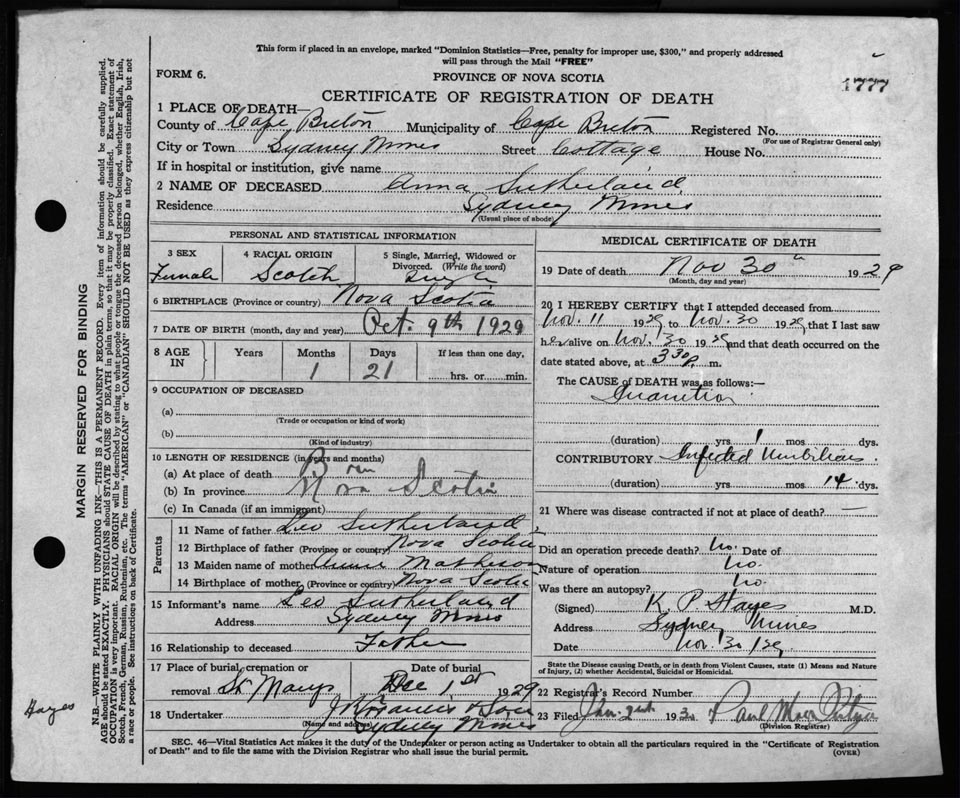 This form if placed in an envelope, marked "Dominion Statistics—Free, penalty for improper use, $300," and properly addressed
will pass through the Mail "FREE"
FORM 6.
PROVINCE OF NOVA SCOTIA
1777
CERTIFICATE OF REGISTRATION OF DEATH
1 PLACE OF DEATH—
County of Cape Breton Municipality of Cape Breton Registered No.
(For use of Registrar General only)
City or Town Sydney Mines Street Cottage House No.
If in hospital or institution, give name
2 NAME OF DECEASED Anna Sutherland
Residence Sydney Mines
(Usual place of abode)
PERSONAL AND STATISTICAL INFORMATION
3 SEX Female
4 RACIAL ORIGIN Scotch
5 Single, Married, Widowed or Divorced. (Write the word) Single
6 BIRTHPLACE (Province or country) Nova Scotia
7 DATE OF BIRTH (month, day and year) Oct. 9th 1929
8 AGE IN Years Months 1 Days 21 If less than one day, hrs. or min.
9 OCCUPATION OF DECEASED
(a)
(Trade or occupation or kind of work)
(b)
(Kind of industry)
10 LENGTH OF RESIDENCE (in years and months)
(a) At place of death Born
(b) In province Nova Scotia
(c) In Canada (if an immigrant)
Parents
11 Name of father Leo Sutherland
12 Birthplace of father (Province or country) Nova Scotia
13 Maiden name of mother Annie Matheson
14 Birthplace of mother (Province or country) Nova Scotia
15 Informant's name Leo Sutherland
Address Sydney Mines
16 Relationship to deceased Father
17 Place of burial, cremation or removal St Marys
Date of burial Dec 1st 1929
18 Undertaker & Son
(Name and address) Sydney Mines
MEDICAL CERTIFICATE OF DEATH
19 Date of death Nov 30th 1929
(Month, day and year)
20 I HEREBY CERTIFY that I attended deceased from
Nov. 11 1929 to Nov. 30 1929 that I last saw
her alive on Nov. 30 1929 and that death occurred on the
date stated above, at 3 30 P. m.
The CAUSE OF DEATH was as follows:—
Inanition
(duration) yrs 1 mos dys.
CONTRIBUTORY Infected Umbilicus
(duration) yrs. mos 14 dys.
21 Where was disease contracted if not at place of death? —
Did an operation precede death? No. Date of
Nature of operation No.
Was there an autopsy? No.
(Signed) K. P. Hayes M.D.
Address Sydney Mines
Date Nov. 30/29
State the Disease causing Death, or in death from Violent Causes, state (1) Means and Nature
of Injury, (2) whether Accidental, Suicidal or Homicidal.
22 Registrar's Record Number
23 Filed Jan. 2nd 1930 Paul
(Division Registrar)
SEC. 46—Vital Statistics Act makes it the duty of the Undertaker or person acting as Undertaker to obtain all the particulars required in the "Certificate of Registration
of Death" and to file the same with the Division Registrar who shall issue the burial permit.
(OVER)
MARGIN RESERVED FOR BINDING
N.B.—WRITE PLAINLY WITH UNFADING INK—THIS IS A PERMANENT RECORD. Every item of information should be carefully supplied.
AGE should be stated EXACTLY. PHYSICIANS should STATE CAUSE OF DEATH in plain terms, so that it may be properly classified. Exact statement of
OCCUPATION is very important. RACIAL ORIGIN will be described by stating to what people or tongue the deceased person belonged, whether English, Irish,
Scotch, French, German, Russian, Ruthenian, etc. The terms "AMERICAN" or "CANADIAN" SHOULD NOT BE USED as they express citizenship but not
a race or people. See instructions on back of Certificate.
Hayes